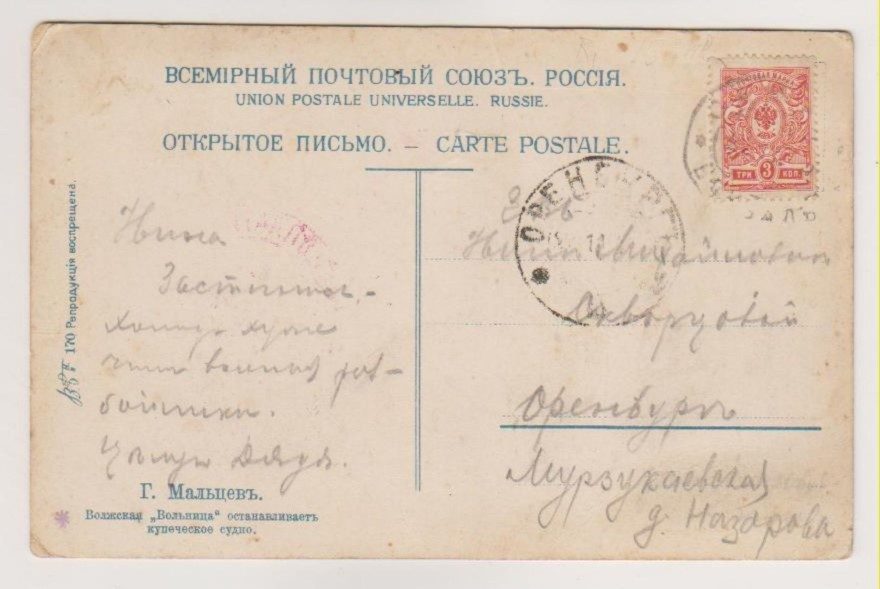 ВСЕМІРНЫЙ ПОЧТОВЫЙ СОЮЗЪ. РОССІЯ.
UNION POSTALE UNIVERSELLE. RUSSIE.
ОТКРЫТОЕ ПИСЬМО. — CARTE POSTALE.
ПОЧТОВАЯ МАРКА
ТРИ 3 КОП.
ОРЕНБУРГЪ
170 Репродукція воспрещена.
Нина
хуже
бойники.
Цѣлую Дядя.
Г. Мальцевъ.
Волжская „Вольница" останавливаетъ
купеческое судно.
Нинѣ Михайловнѣ
Скворцовой
Оренбургъ
Мурзукаевская
д. Назарова